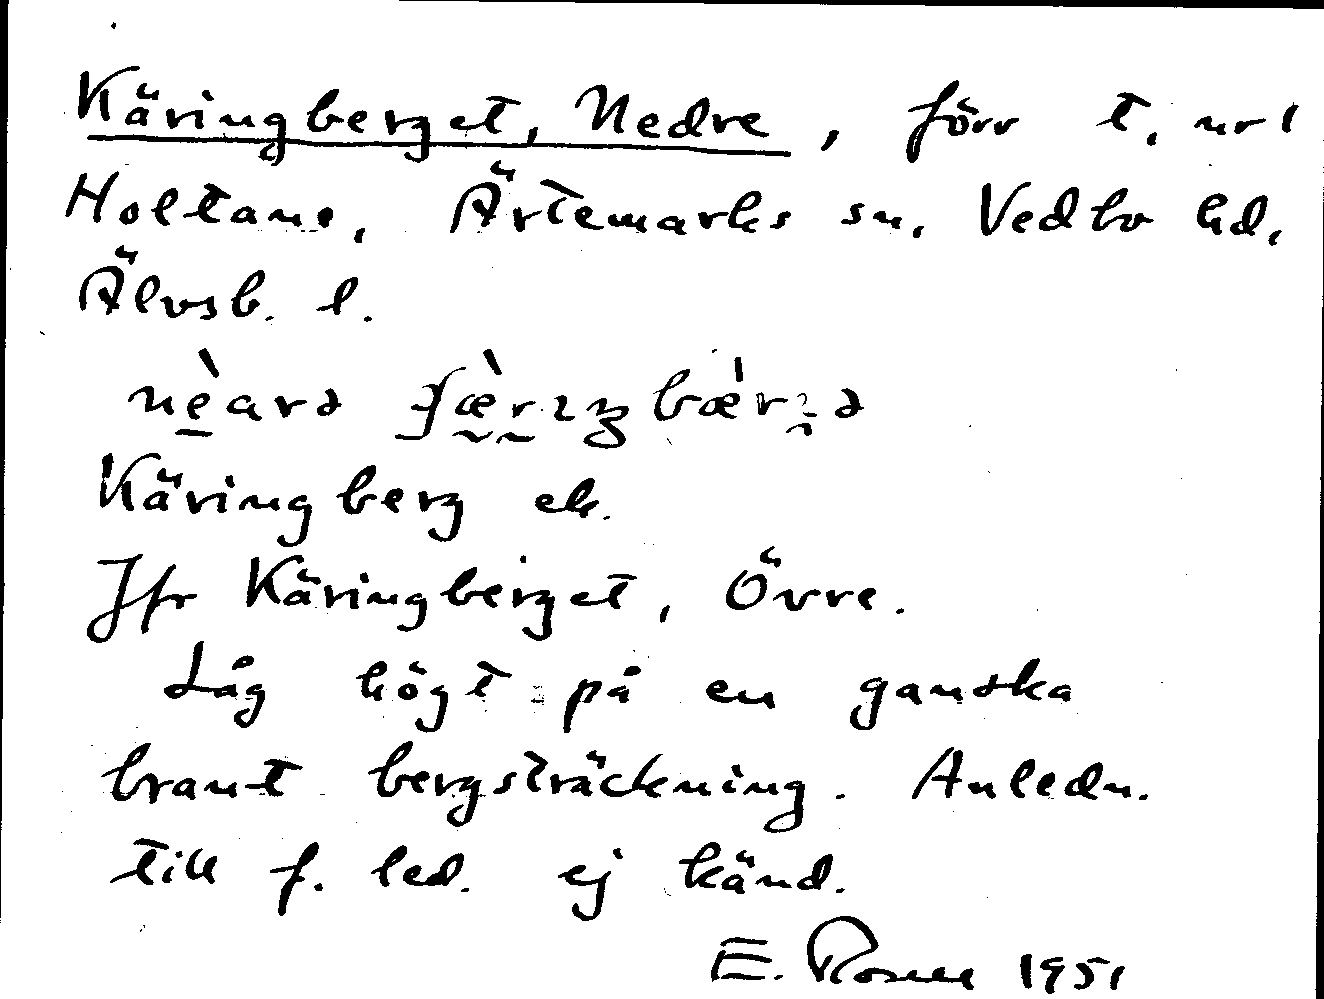 Käringberget, Nedre, förr t. nr 1
Holtane, Ärtemarks sn. Vedbo hd.
Älvsb. l.
Käringberg ek.
Jfr Käringberget, Övre.
Låg högt på en ganska
brant bergsträckning. Anledn.
till f. led. ej känd.
E. 1951